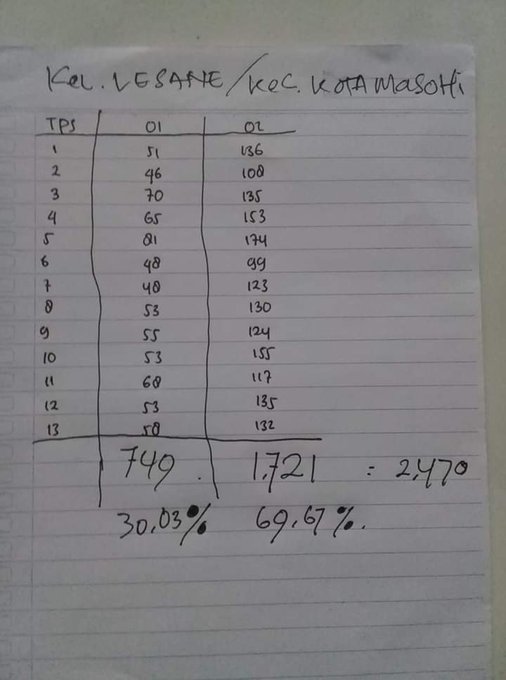 Kel. LESANE/KeC. KOTA MASOHi
TPS 01 02
1 51 136
2 46 108
3 70 135
4 65 153
5 81 174
6 48 99
7 48 123
8 53 130
9 55 124
10 53 155
11 68 117
12 53 135
13 58 132
749. 1.721 = 2.470
30.03% 69.67%.